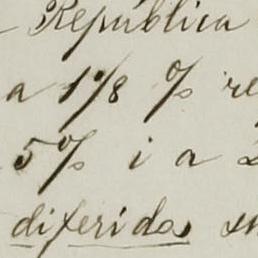 República
a 1 1/8 % re
5 % i a
diferidos